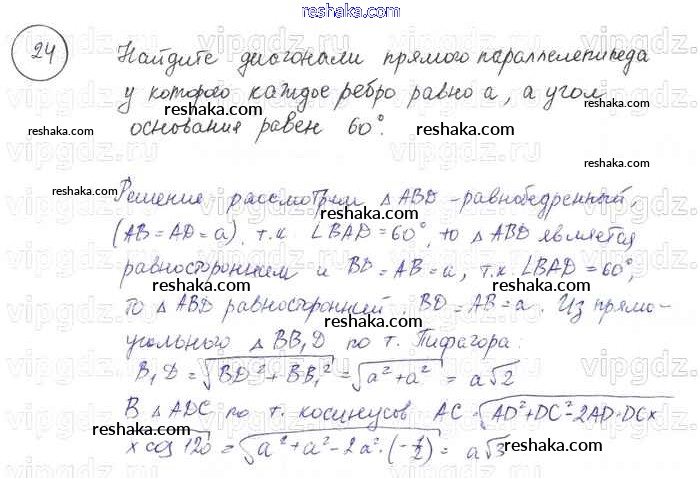 reshaka.com
24
Найдите диагонали прямого параллелепипеда
у которого каждое ребро равно a, а угол
основания равен 60°.
reshaka.com
reshaka.com
reshaka.com
reshaka.com
reshaka.com
reshaka.com
Решение рассмотрим △ABD - равнобедренный,
(AB = AD = a). т.к ∠BAD = 60°, то △ABD является
равносторонним и BD = AB = a, т.к. ∠BAD = 60°,
то △ABD равносторонний. BD = AB = a. Из прямо-
угольного △BB₁D по т. Пифагора:
B₁D = √(BD² + BB₁²) = √(a² + a²) = a√2
В △ADC по т. косинусов AC = √(AD² + DC² - 2AD·DC×
× cos 120) = √(a² + a² - 2a²·(-1/2)) = a√3
reshaka.com
reshaka.com
reshaka.com
reshaka.com
reshaka.com
reshaka.com
reshaka.com
reshaka.com
reshaka.com
reshaka.com
vipgdz.ru